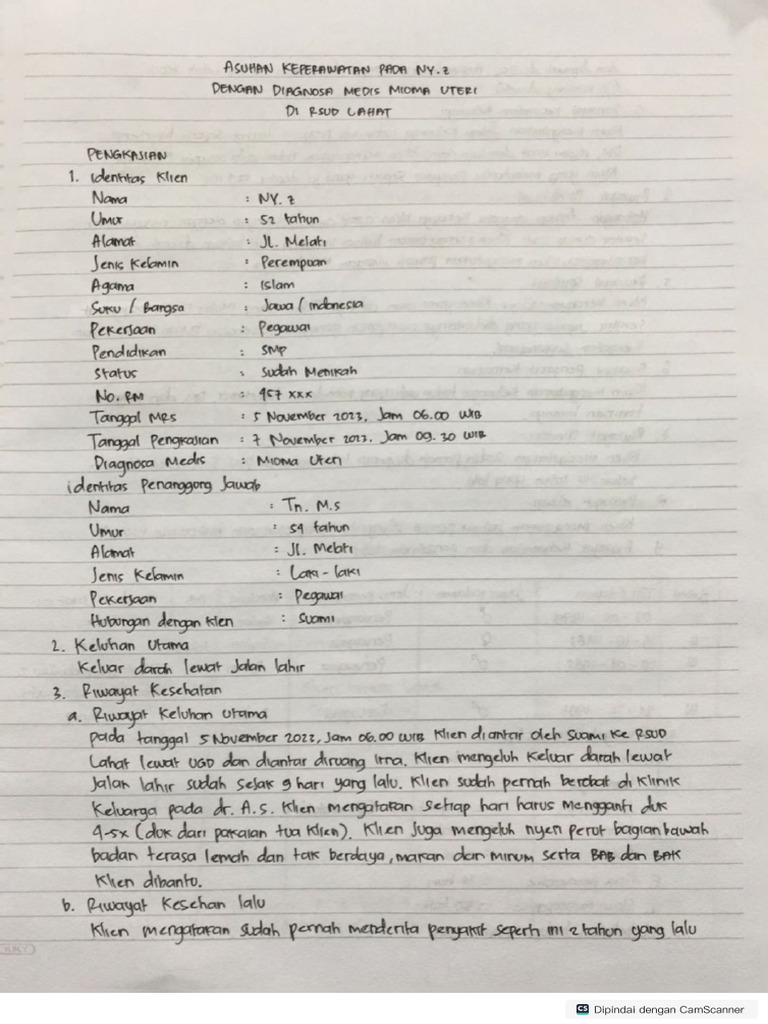 ASUHAN KEPERAWATAN PADA NY. Z
DENGAN DIAGNOSA MEDIS MIOMA UTERI
DI RSUD LAHAT
PENGKAJIAN
1. Identitas Klien
Nama : NY. Z
Umur : 52 tahun
Alamat : JL. Melati
Jenis Kelamin : Perempuan
Agama : Islam
Suku / Bangsa : Jawa / Indonesia
Pekerjaan : Pegawai
Pendidikan : SMP
Status : Sudah Menikah
No. RM : 457 xxx
Tanggal MRS : 5 November 2023, Jam 06.00 WIB
Tanggal Pengkajian : 7 November 2023. Jam 09.30 WIB
Diagnosa Medis : Mioma Uteri
identitas Penanggong Jawab
Nama : Tn. M.S
Umur : 54 tahun
Alamat : JL. Melati
Jenis Kelamin : Laki - laki
Pekerjaan : Pegawai
Hubungan dengan klen : Suami
2. Keluhan Utama
Keluar darah lewat Jalan lahir
3. Riwayat Kesehatan
a. Riwayat Keluhan Utama
pada tanggal 5 November 2023, Jam 06.00 WIB Klien di antar oleh Suami Ke RSUD
Lahat lewat UGD dan diantar diruang Irna. Klien mengeluh Keluar darah lewat
Jalan lahir sudah sejak 9 hari yang lalu. Klien sudah pernah berobat di Klinik
Keluarga pada dr. A.S. Klien mengatakan setiap hari harus mengganti duk
4-5x (duk dari pakaian tua Klien). Klien Juga mengeluh nyeri perut bagian bawah
badan terasa lemah dan tak berdaya, makan dan minum serta BAB dan BAK
Klien dibantu.
b. Riwayat Kesehan lalu
Klien mengatakan sudah pernah menderita penyakit seperti ini 2 tahun yang lalu
CS Dipindai dengan CamScanner